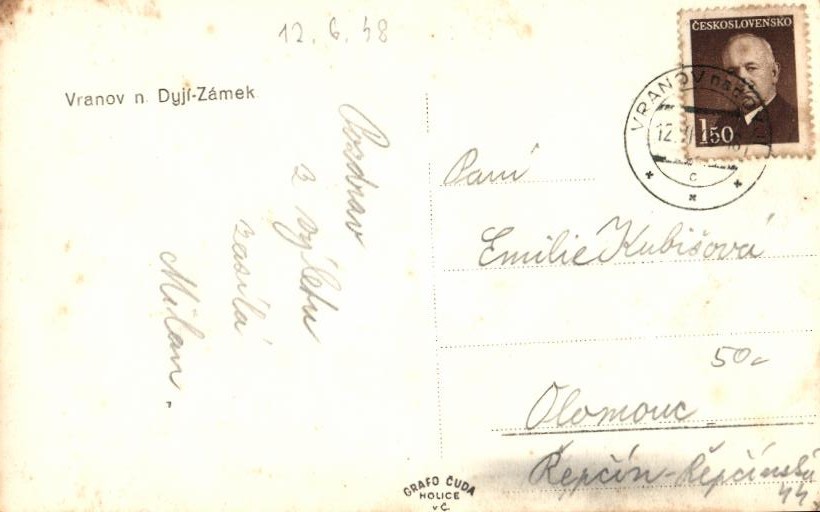 12. 6. 48
Vranov n. Dyjí-Zámek
Pozdrav
z výletu
zasílá
Milan.
ČESKOSLOVENSKO
1.50
VRANOV nad
12. VI
c
Paní
Emilie Kubišová
50
Olomouc
Řepčín-Řepčínská
44.
GRAFO ČUDA
HOLICE
v Č.